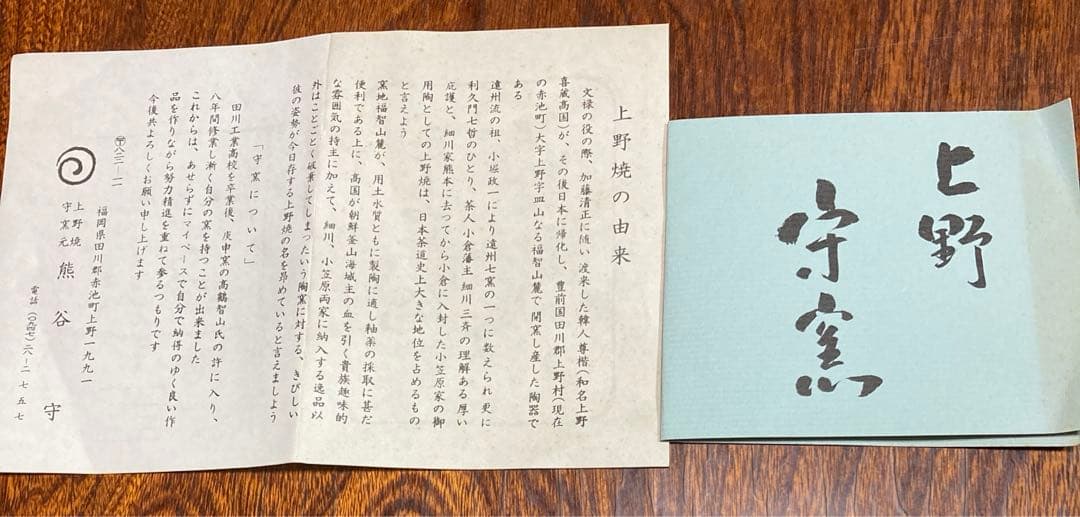 上野
守窯
上野焼の由来
文禄の役の際、加藤清正に随い渡来した韓人尊楷(和名上野
喜蔵高国)が、その後日本に帰化し、豊前国田川郡上野村(現在
の赤池町)大字上野字皿山なる福智山麓で開窯し産した陶器で
ある
遠州流の祖、小堀政一により遠州七窯の一つに数えられ更に
利久門七哲のひとり、茶人小倉藩主細川三斉の理解ある厚い
庇護と、細川家熊本に去つてから小倉に入封した小笠原家の御
用陶としての上野焼は、日本茶道史上大きな地位を占めるもの
と言えよう
窯地福智山麓が、用土水質ともに製陶に適し釉薬の採取に甚だ
便利である上に、高国が朝鮮釜山海城主の血を引く貴族趣味的
な雰囲気の持主に加えて、細川、小笠原両家に納入する逸品以
外はことごとく破棄してしまったいう陶窯に対する、きびしい
彼の姿勢が今日存する上野焼の名を昂めていると言えましよう
「守窯について」
田川工業高校を卒業後、庚申窯の高鶴智山氏の許に入り、
八年間修業し漸く自分の窯を持つことが出来ました
これからは、あせらずにマイペースで自分で納得のゆく良い作
品を作りながら努力精進を重ねて参るつもりです
今後共よろしくお願い申し上げます
〒八二二―一一
福岡県田川郡赤池町上野一九九一
上野焼
守窯元 熊谷守
電話(〇九四七)二八―二七五七